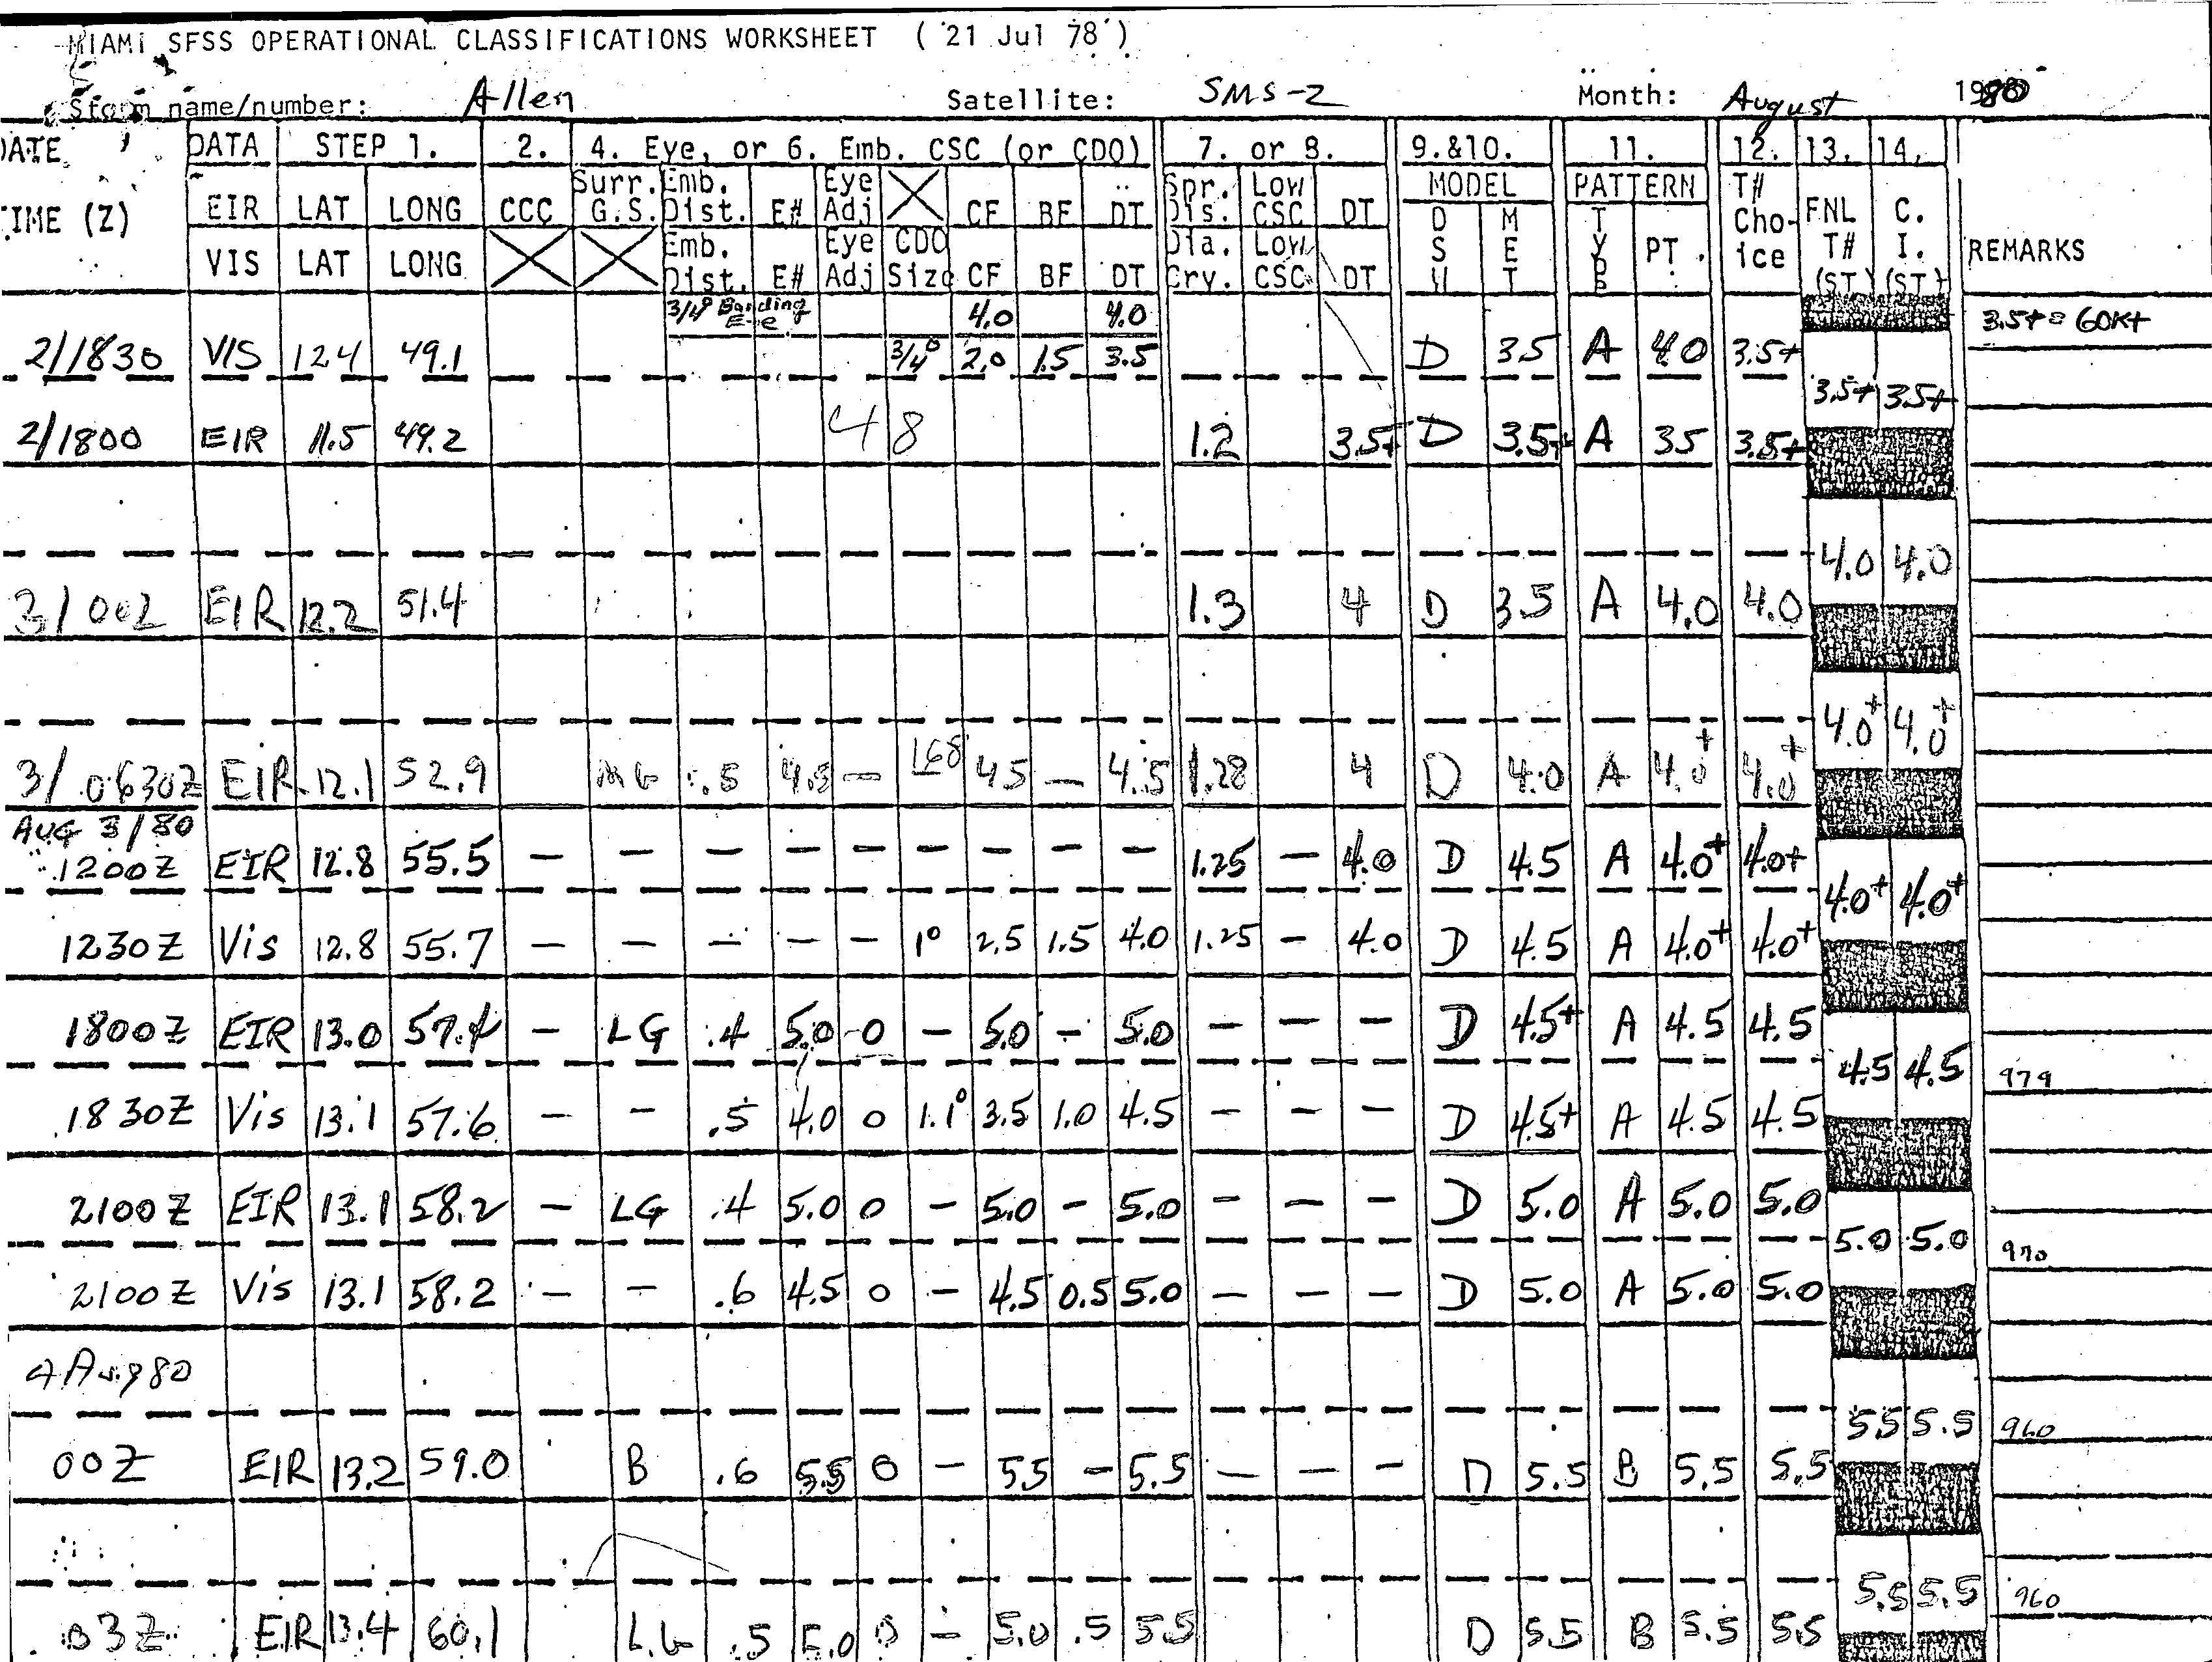 MIAMI SFSS OPERATIONAL CLASSIFICATIONS WORKSHEET ( 21 Jul 78 )
Storm name/number: Allen Satellite: SMS-2 Month: August 1980
DATE DATA STEP 1. 2. 4. Eye, or 6. Emb. CSC (or CDO) 7. or 8. 9.&10. 11. 12. 13. 14.
TIME (Z) EIR LAT LONG CCC Surr. G.S. Emb. Dist. E# Eye Adj CF BF DT Spr. Dis. Low CSC DT MODEL PATTERN T# Choice FNL T# (ST) C. I. (ST) REMARKS
VIS LAT LONG Emb. Dist. E# Eye Adj CDO Size CF BF DT Dia. Crv. Low CSC DT D S U M E T T Y P E PT.
3/4° Banding Eye 4.0 4.0 3.5+ = 60Kt
2/1830 VIS 12.4 49.1 3/4° 2.0 1.5 3.5 D 3.5 A 4.0 3.5+
3.5+ 3.5+
2/1800 EIR 11.5 49.2 48 1.2 3.5+ D 3.5+ A 3.5 3.5+
4.0 4.0
3/00Z EIR 12.2 51.4 1.3 4 D 3.5 A 4.0 4.0
4.0+ 4.0+
3/0630Z EIR 12.1 52.9 MG .5 4.5 — 1.68 4.5 — 4.5 1.28 4 D 4.0 A 4.0+ 4.0+
AUG 3/80
1200Z EIR 12.8 55.5 — — — — — — — — — 1.25 — 4.0 D 4.5 A 4.0+ 4.0+
4.0+ 4.0+
1230Z Vis 12.8 55.7 — — — — — 1° 2.5 1.5 4.0 1.25 — 4.0 D 4.5 A 4.0+ 4.0+
1800Z EIR 13.0 57.4 — LG .4 5.0 0 — 5.0 — 5.0 — — — D 4.5+ A 4.5 4.5
4.5 4.5 979
1830Z Vis 13.1 57.6 — — .5 4.0 0 1.1° 3.5 1.0 4.5 — — — D 4.5+ A 4.5 4.5
2100Z EIR 13.1 58.2 — LG .4 5.0 0 — 5.0 — 5.0 — — — D 5.0 A 5.0 5.0
5.0 5.0 970
2100Z Vis 13.1 58.2 — — .6 4.5 0 — 4.5 0.5 5.0 — — — D 5.0 A 5.0 5.0
4 Aug 80
5.5 5.5 960
00Z EIR 13.2 59.0 B .6 5.5 0 — 5.5 — 5.5 — — — D 5.5 B 5.5 5.5
5.5 5.5 960
03Z EIR 13.4 60.1 LG .5 5.0 0 — 5.0 .5 5.5 D 5.5 B 5.5 5.5